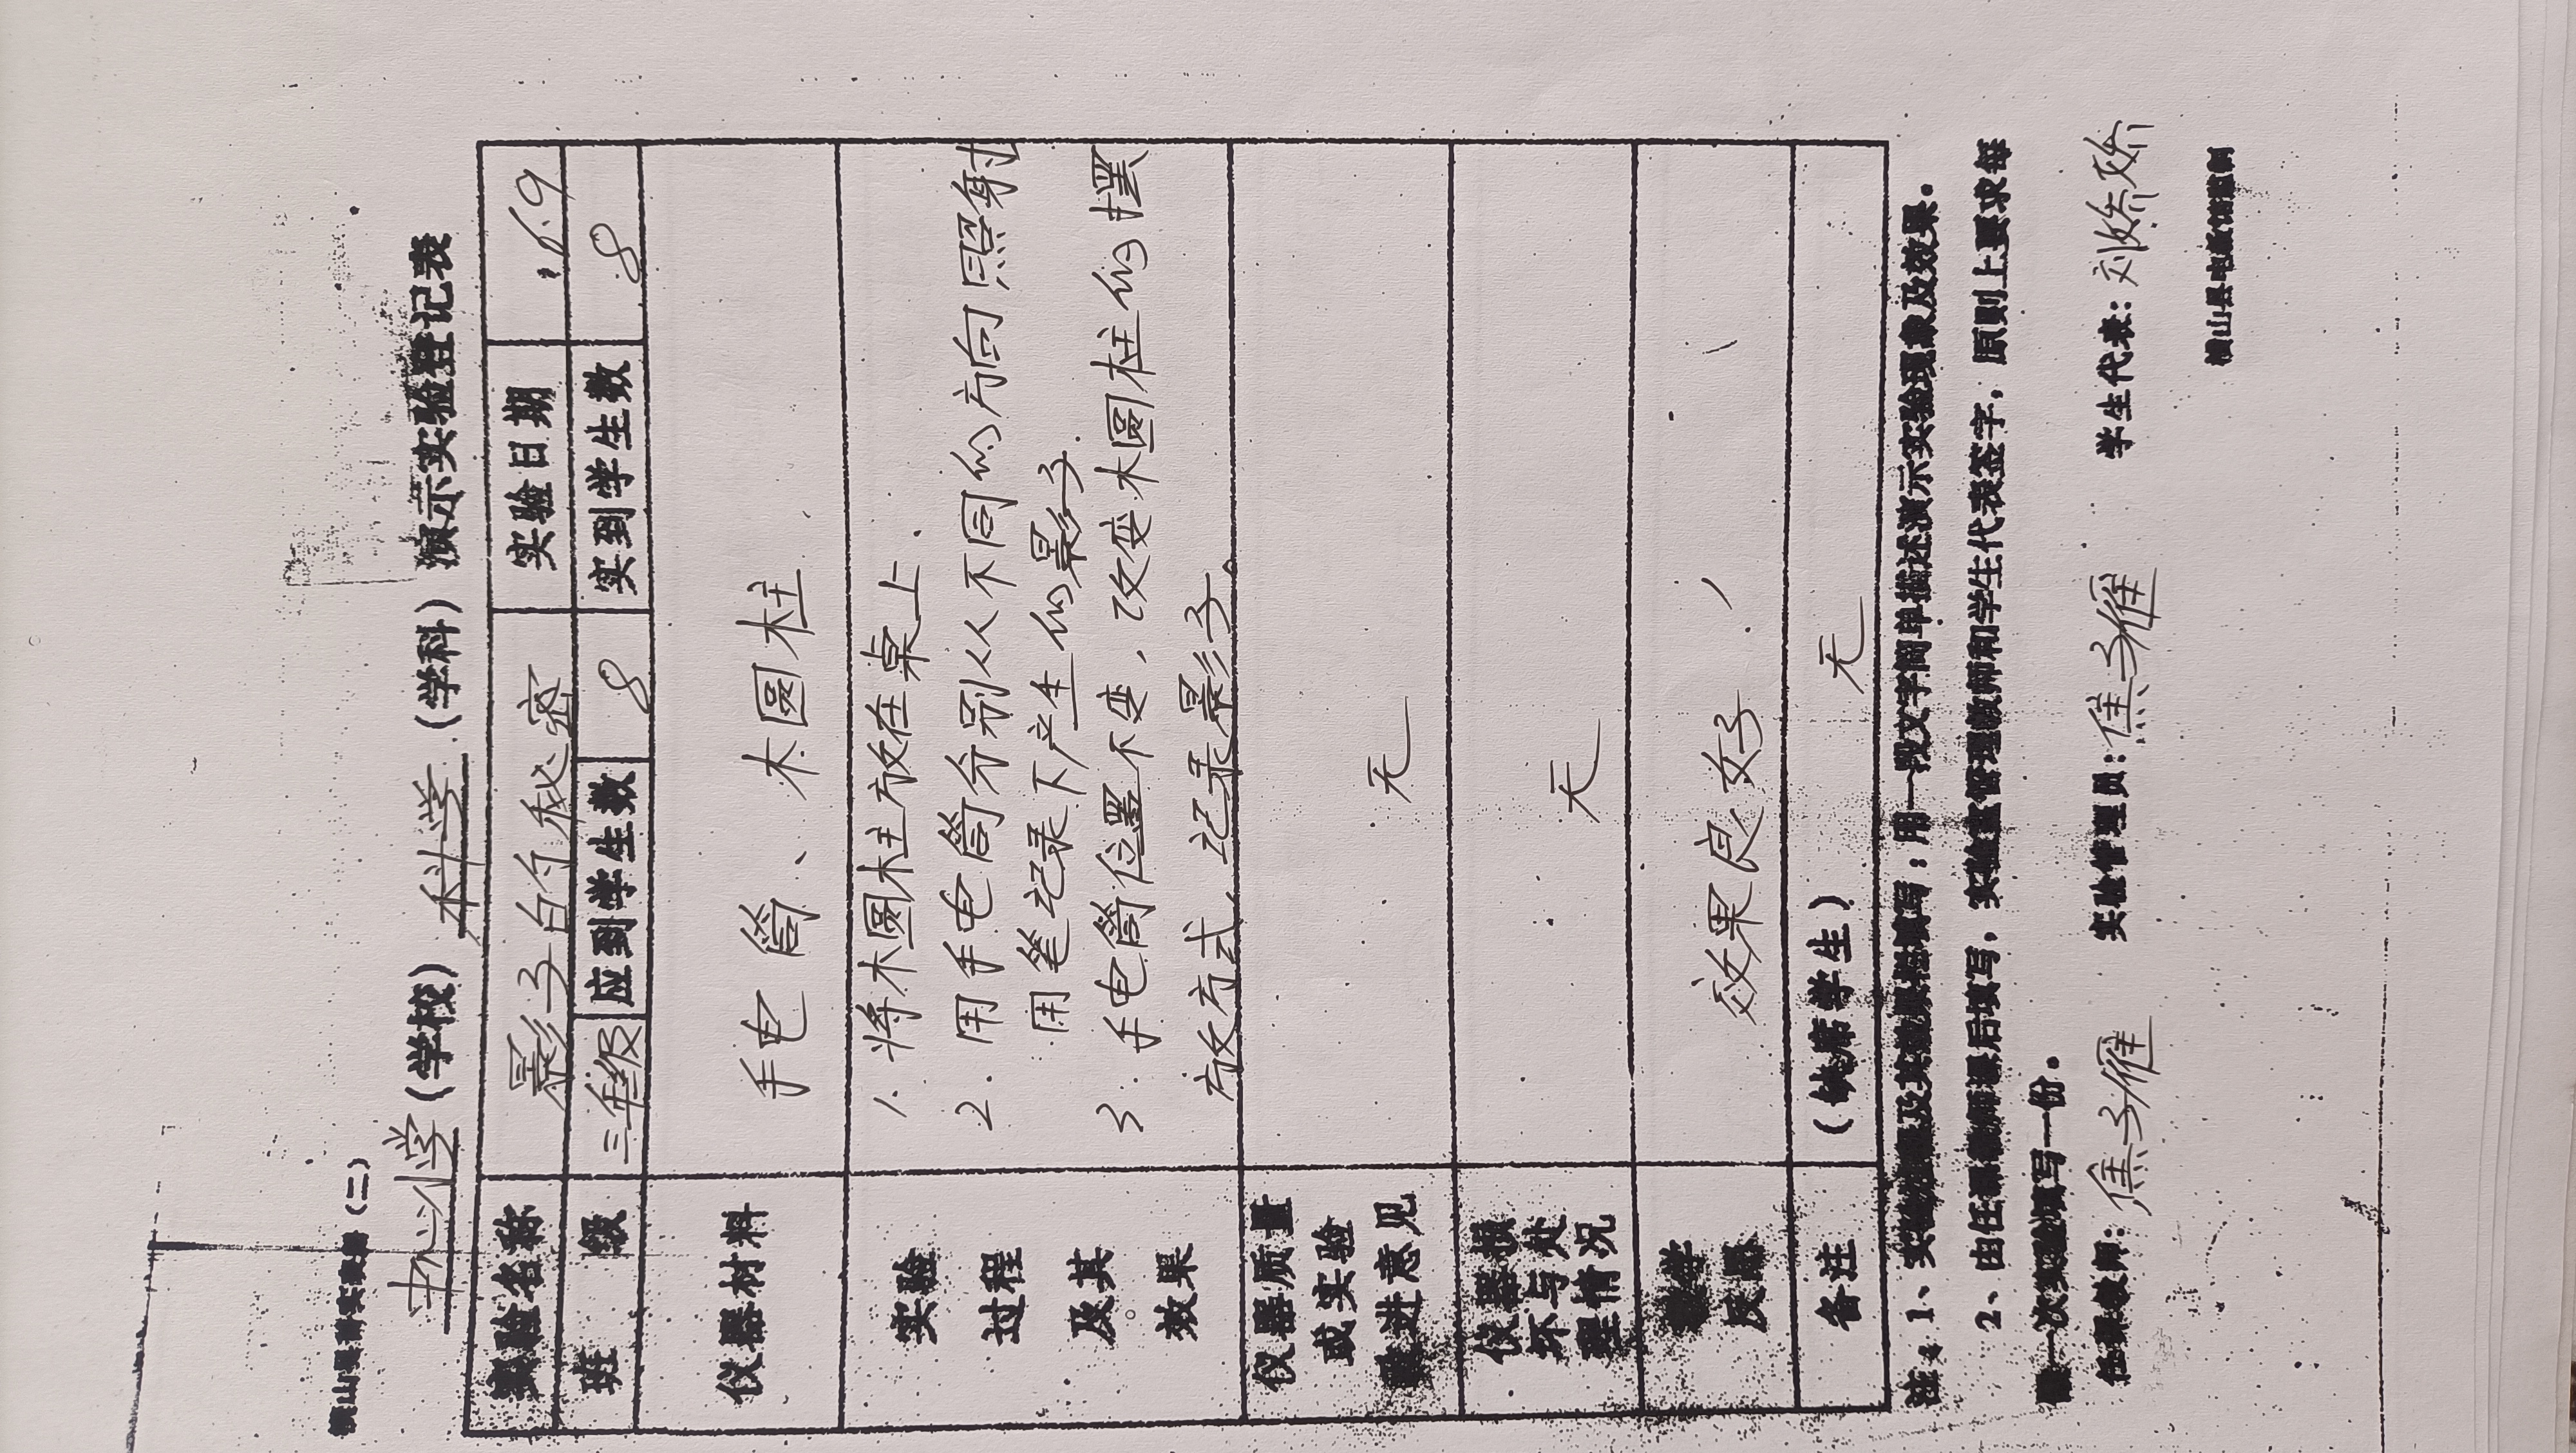 横山县教实表(二)
中心小学(学校) 科学(学科)演示实验登记表
实验名称 影子的秘密 实验日期 .6.9
班级 三年级 应到学生数 8 实到学生数 8
仪器材料 手电筒、木圆柱
实验过程及其效果
1. 将木圆柱放在桌上.
2. 用手电筒分别从不同的方向照射过
用笔记录下产生的影子.
3. 手电筒位置不变,改变木圆柱的摆
放方式,记录影子。
仪器质量或实验改进意见 无
仪器损坏与处理情况 无
教学反器 效果良好
备注 (缺席学生) 无
注:1、实验过程及其效果栏填写:用一段文字简单描述演示实验现象及效果。
2、由任课教师课后填写,实验室管理教师和学生代表签字,原则上要求每
做一次实验填写一份。
任课教师:焦子雁 实验管理员:焦子雁 学生代表:刘娇娇
横山县电教馆监制